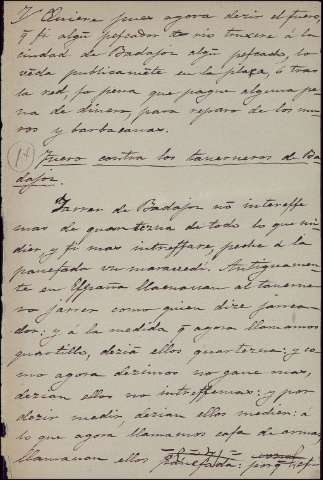 Y Quiere pues agora dezir el fuero,
q̃ si algũ pescador de rio truxere á la
ciudad de Badajoz algũ pescado, lo
vẽda publicamẽte en la plaça, ó tras
la red, so pena que pague alguna pe
na de dinero, para reparo de los mu
ros y barbacanas.
Fuero contra los taverneros de Ba
dajoz.
Jarrer de Badajoz nõ intresse
mas de quarterna de todo lo que uen
dier, y si mas intressare, peche á la
panefada un maravedi. Antiguamen
te en España llamauan al tauerne
ro jarrer como quien dize jarrea
dor: y á la medida q̃ agora llamamos
quartillo, dezĩa ellos quarterna: y co
mo agora dezimos no gane mas,
dezian ellos no intressemas: y por
dezir medio, dezian ellos medien: á
lo que agora llamamos casa de armas,
llamauan ellos panefada: porq̃